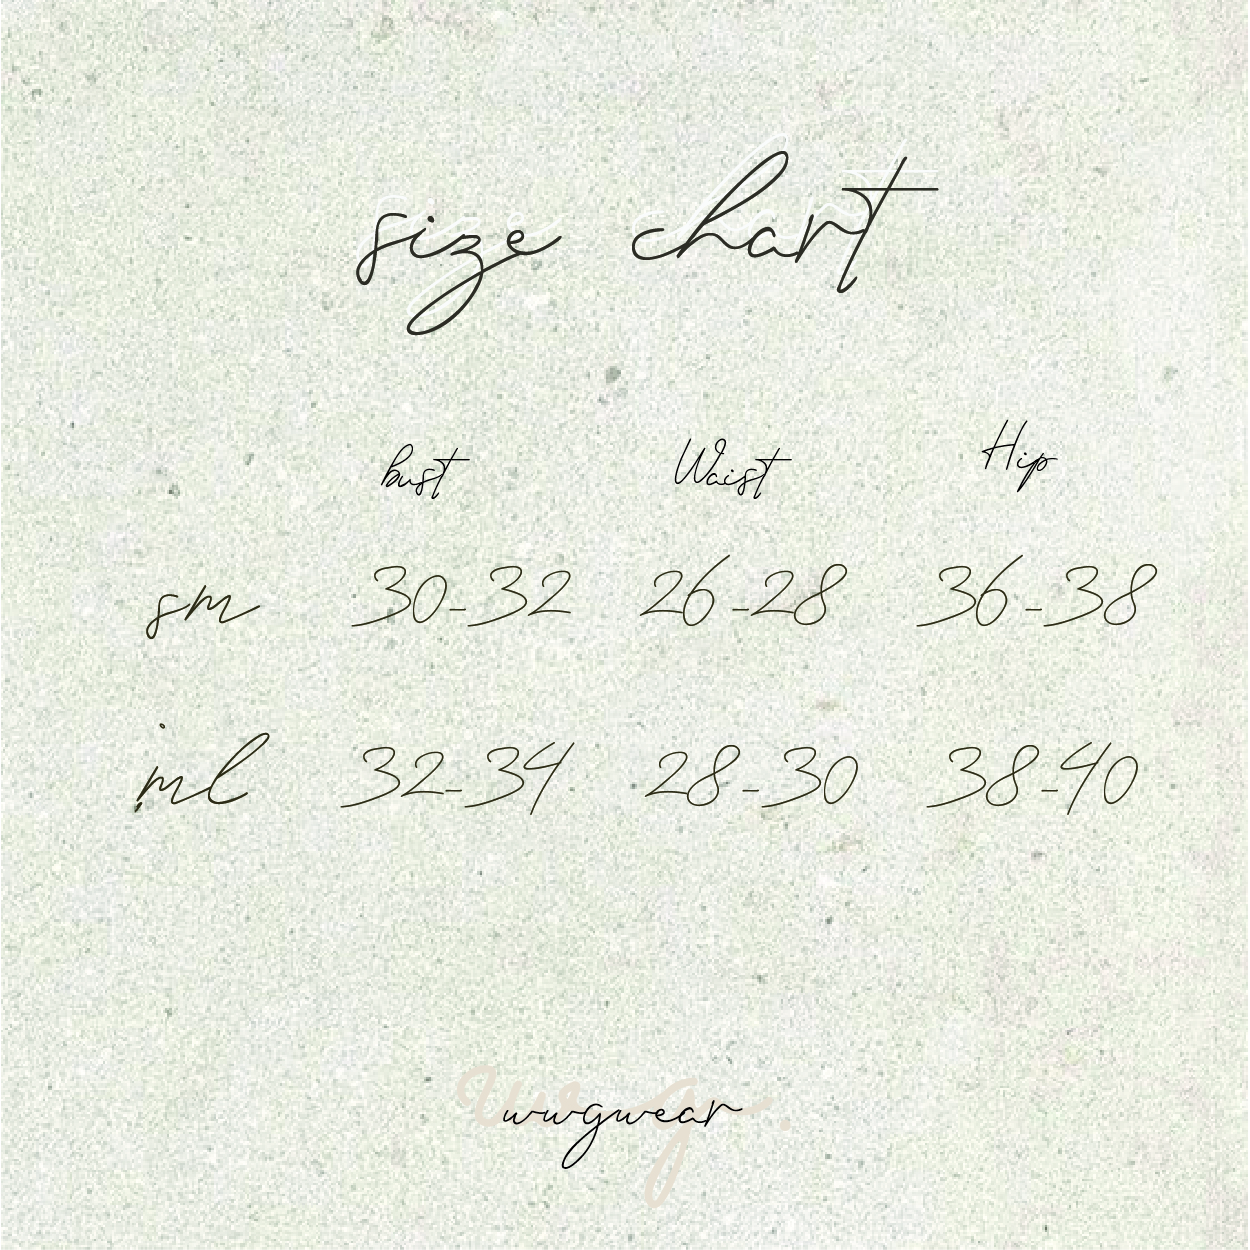 size chart
bust Waist Hip
sm 30-32 26-28 36-38
ml 32-34 28-30 38-40
wwg.
wwgwear